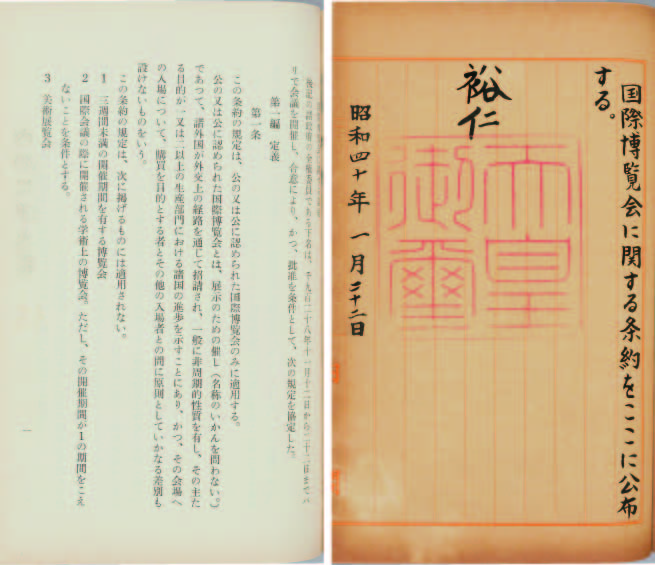 国際博覧会に関する条約をここに公布
する。
裕仁
天皇
御璽
昭和四十年一月二十二日
パリで会議を開催し、合意により、かつ、批准を条件として、次の規定を協定した。
第一編 定義
第一条
この条約の規定は、公の又は公に認められた国際博覧会のみに適用する。
公の又は公に認められた国際博覧会とは、展示のための催し(名称のいかんを問わない。)
であつて、諸外国が外交上の経路を通じて招請され、一般に非周期的性質を有し、その主た
る目的が一又は二以上の生産部門における諸国の進歩を示すことにあり、かつ、その会場へ
の入場について、購買を目的とする者とその他の入場者との間に原則としていかなる差別も
設けないものをいう。
この条約の規定は、次に掲げるものには適用されない。
1 三週間未満の開催期間を有する博覧会
2 国際会議の際に開催される学術上の博覧会。ただし、その開催期間が1の期間をこえ
ないことを条件とする。
3 美術展覧会
一